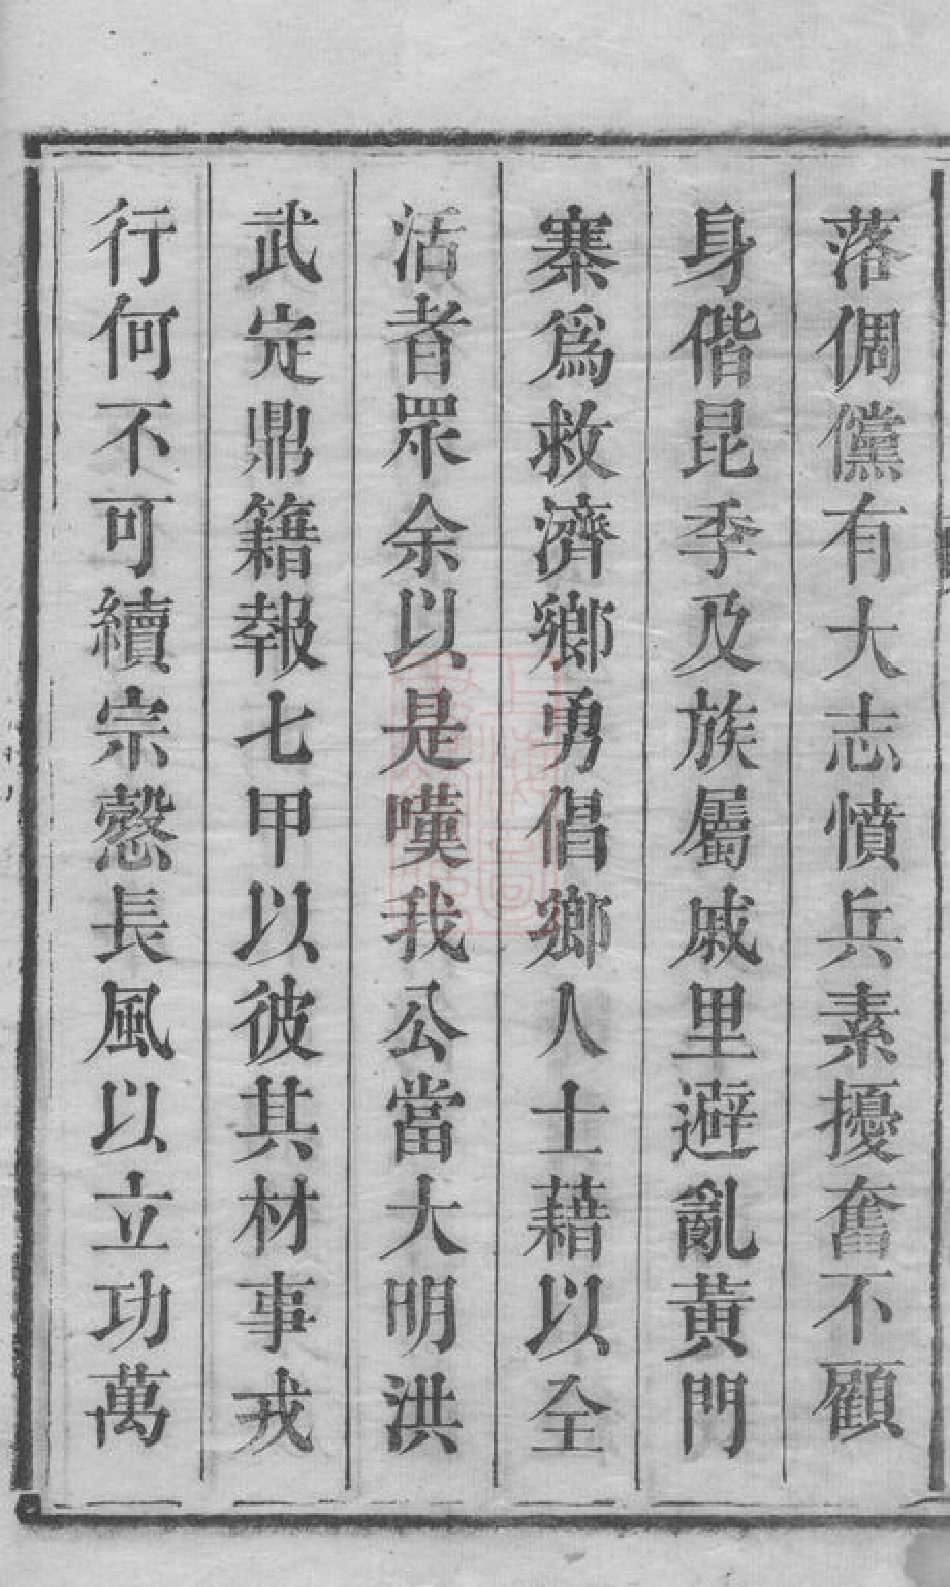 落倜儻有大志憤兵素擾奮不顧
身偕昆季及族屬戚里避亂黃門
寨爲救濟鄉勇倡鄉人士藉以全
活者眾余以是嘆我公當大明洪
武定鼎籍報七甲以彼其材事戎
行何不可續宗愨長風以立功萬